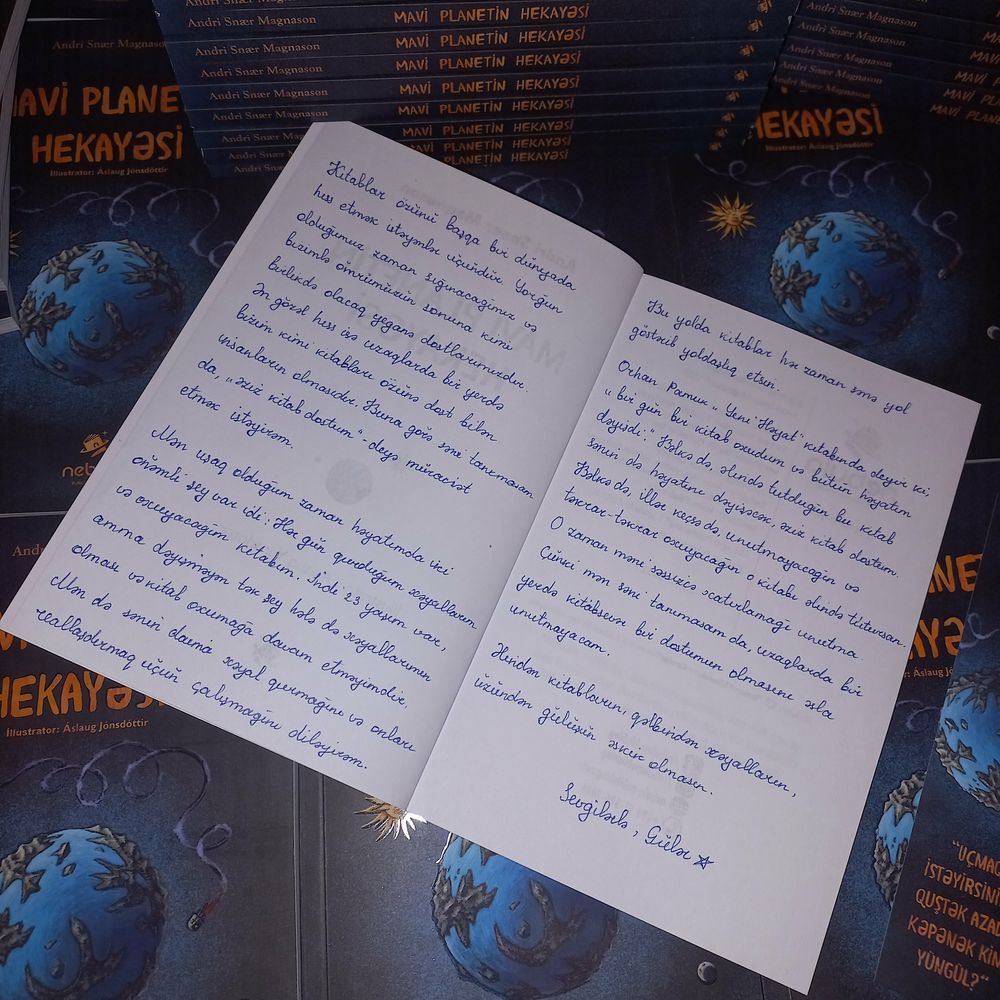 Andri Snær Magnason MAVİ PLANETİN HEKAYƏSİ
Andri Snær Magnason MAVİ PLANETİN HEKAYƏSİ
Andri Snær Magnason MAVİ PLANETİN HEKAYƏSİ
Andri Snær Magnason MAVİ PLANETİN HEKAYƏSİ
Andri Snær Magnason MAVİ PLANETİN HEKAYƏSİ
Andri Snær Magnason MAVİ PLANETİN HEKAYƏSİ
Andri Snær Magnason MAVİ PLANETİN HEKAYƏSİ
Andri Snær Magnason
Andri Snær Magnason
Andri Snær Magnason
Andri Snær Magnason
Andri Snær Magnason
MAVİ PLANE
HEKAYƏSİ
Illustrator: Áslaug Jónsdóttir
HEKAYƏSİ
Illustrator: Áslaug Jónsdóttir
Kitablar özünü başqa bir dünyada
hiss etmək istəyənlər üçündür. Yorğun
olduğumuz zaman sığınacağımız və
bizimlə ömrümüzün sonuna kimi
birlikdə olacaq yeganə dostlarımızdır.
Ən gözəl hiss isə uzaqlarda bir yerdə
bizim kimi kitabları özünə dost bilən
insanların olmasıdır. Buna görə səni tanımasam
da, "əziz kitab dostum" - deyə müraciət
etmək istəyirəm.
Mən uşaq olduğum zaman həyatımda iki
önəmli şey var idi: Hər gün qurduğum xəyallarım
və oxuyacağım kitabım. İndi 23 yaşım var,
amma dəyişməyən tək şey hələ də xəyallarımın
olması və kitab oxumağa davam etməyimdir.
Mən də sənin daima xəyal qurmağını və onları
reallaşdırmaq üçün çalışmağını diləyirəm.
Bu yolda kitablar hər zaman sənə yol
göstərib yoldaşlıq etsin.
Orhan Pamuk "Yeni Həyat" kitabında deyir ki,
"bir gün bir kitab oxudum və bütün həyatım
dəyişdi." Bəlkə də, əlində tutduğun bu kitab
sənin də həyatını dəyişəcək, əziz kitab dostum.
Bəlkə də, illər keçsə də, unutmayacağın və
təkrar-təkrar oxuyacağın o kitabı əlində tutursan.
O zaman məni səssizcə xatırlamağı unutma.
Çünki mən səni tanımasam da, uzaqlarda bir
yerdə kitabsevər bir dostumun olmasını əsla
unutmayacam.
Əlindən kitabların, qəlbindən xəyalların,
üzündən gülüşün əskik olmasın.
Sevgilərlə, Gülər
HEKAYƏSİ
Illustrator: Áslaug Jónsdóttir
"UÇMAQ
İSTƏYİRSİNİ
QUŞTƏK AZAD
KƏPƏNƏK KİM
YÜNGÜL?"